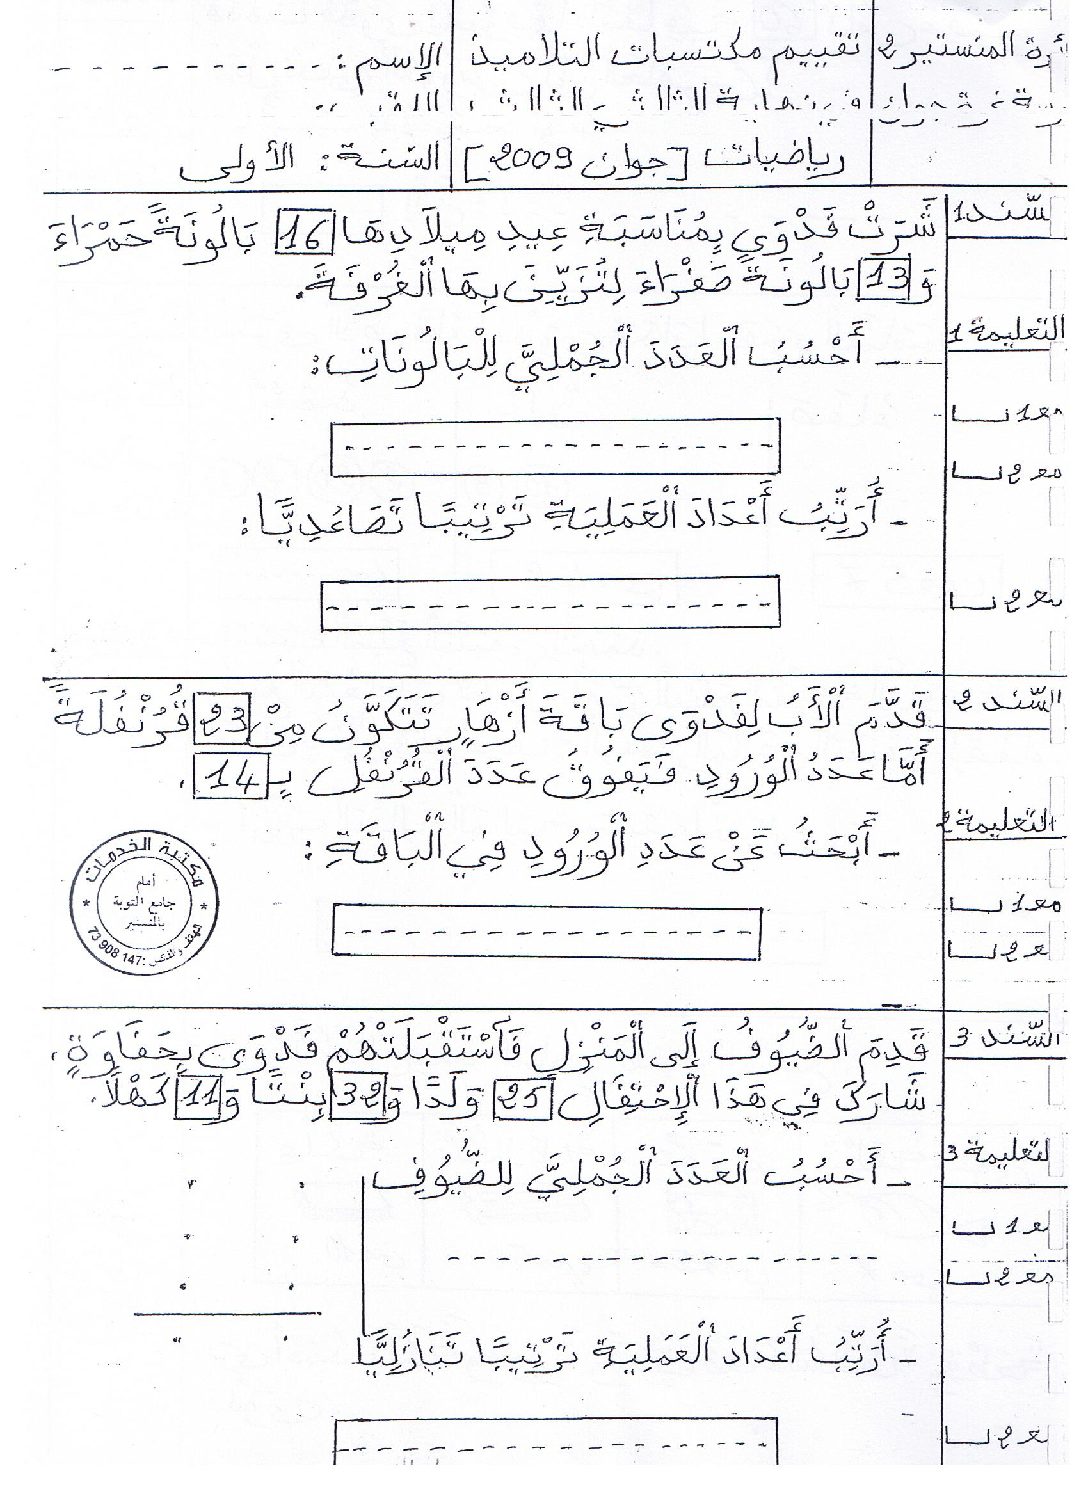 المنستير 2 تقييم مكتسبات التلاميذ الإسم:
رياضيات [جوان 2009] السنة: الأولى
السّند 1
شَرَتْ فَدْوَى بِمُنَاسَبَةِ عِيدِ مِيلَادِهَا 16 بَالُونَةً حَمْرَاءَ
وَ 13 بَالُونَةً صَفْرَاءَ لِتُزَيِّنَ بِهَا الْغُرْفَةَ.
التعليمة 1
- أَحْسُبُ الْعَدَدَ الْجُمْلِيَّ لِلْبَالُونَاتِ:
مع 1
مع 2
- أُرَتِّبُ أَعْدَادَ الْعَمَلِيَةِ تَرْتِيبًا تَصَاعُدِيًّا:
مع 2
السّند 2
قَدَّمَ الْأَبُ لِفَدْوَى بَاقَةَ أَزْهَارٍ تَتَكَوَّنُ مِنْ 23 قُرُنْفُلَةً
أَمَّا عَدَدُ الْوُرُودِ فَيَفُوقُ عَدَدَ الْقُرُنْفُلِ بِـ 14.
التعليمة 2
- أَبْحَثُ عَنْ عَدَدِ الْوُرُودِ فِي الْبَاقَةِ:
مع 1
مع 2
مكتبة الخدمات
أمام
جامع التوبة
73 908 147
السّند 3
قَدِمَ الضُّيُوفُ إِلَى الْمَنْزِلِ فَاسْتَقْبَلَتْهُمْ فَدْوَى بِحَفَاوَةٍ،
شَارَكَ فِي هَذَا الْإِحْتِفَالِ 25 وَلَدًا وَ 32 بِنْتًا وَ 11 كَهْلًا.
التعليمة 3
- أَحْسُبُ الْعَدَدَ الْجُمْلِيَّ لِلضُّيُوفِ
مع 1
مع 2
- أُرَتِّبُ أَعْدَادَ الْعَمَلِيَةِ تَرْتِيبًا تَنَازُلِيًّا
مع 2